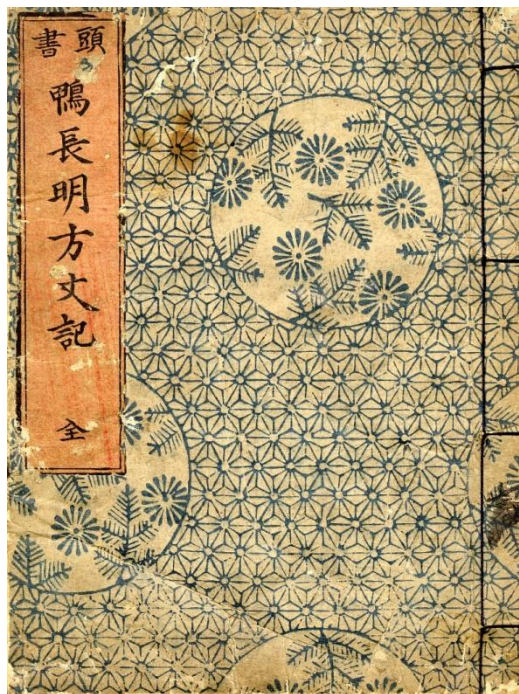 頭書
鴨長明方丈記
全